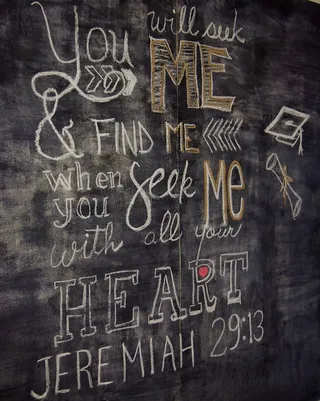 You will seek
ME
& FIND ME
when you seek Me
with all your
HEART
JEREMIAH 29:13